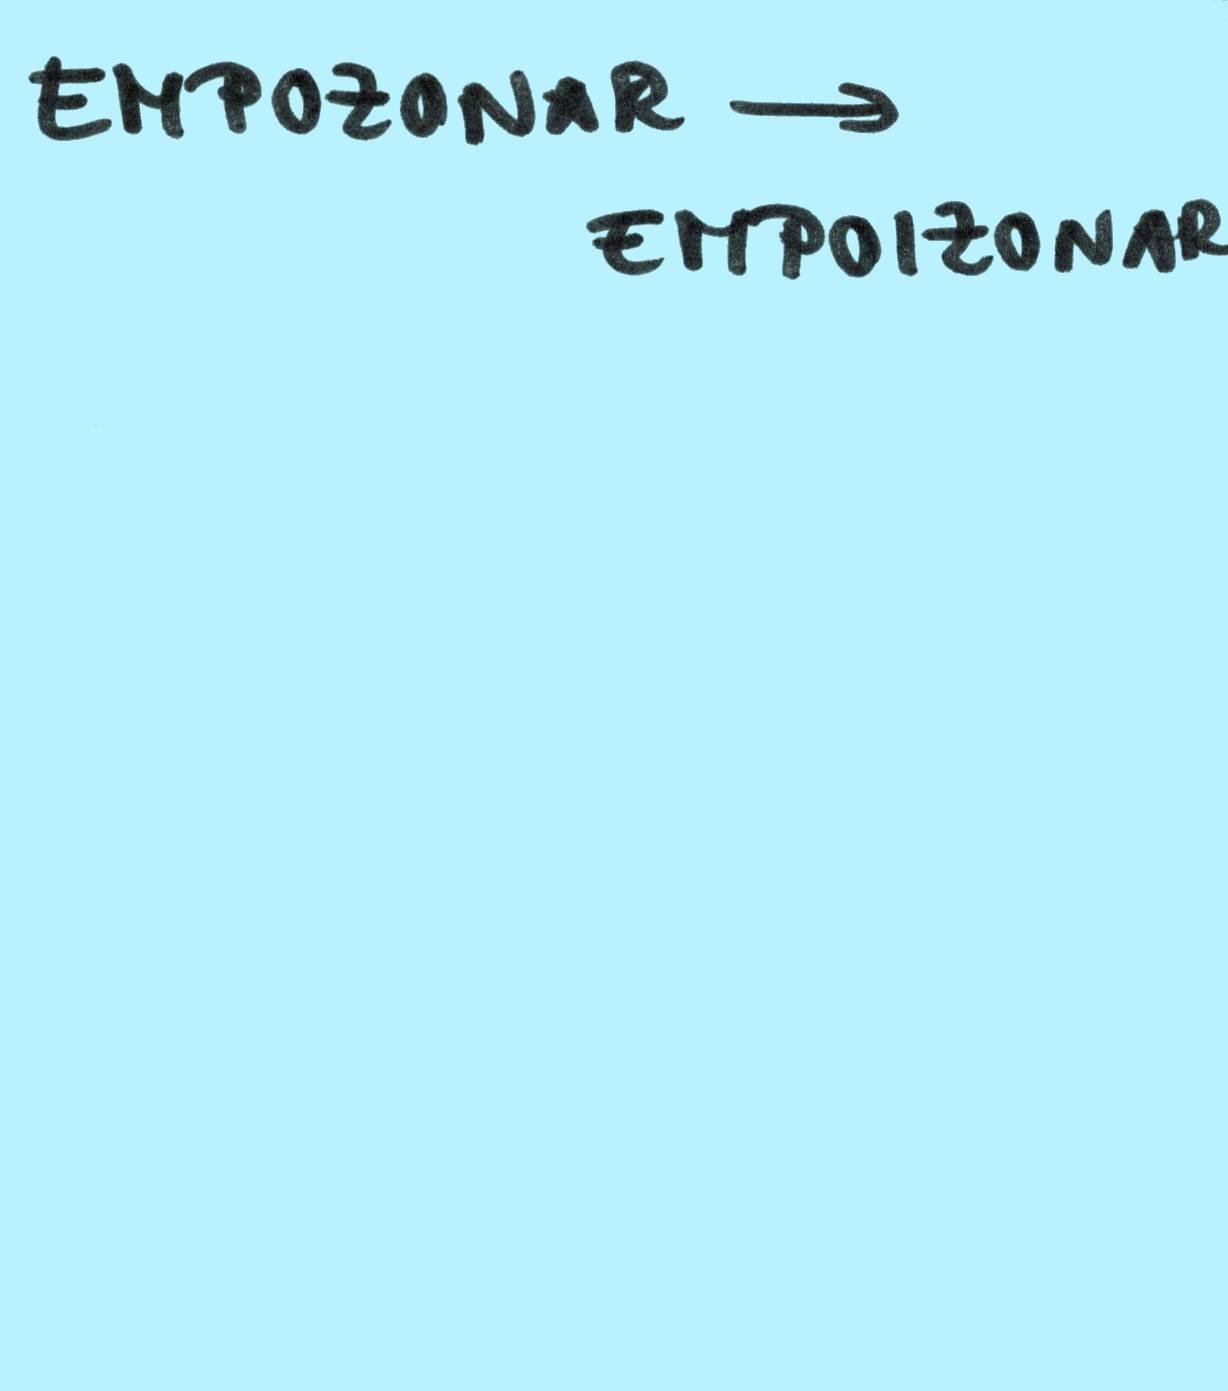 EMPOZONAR →
EMPOIZONAR